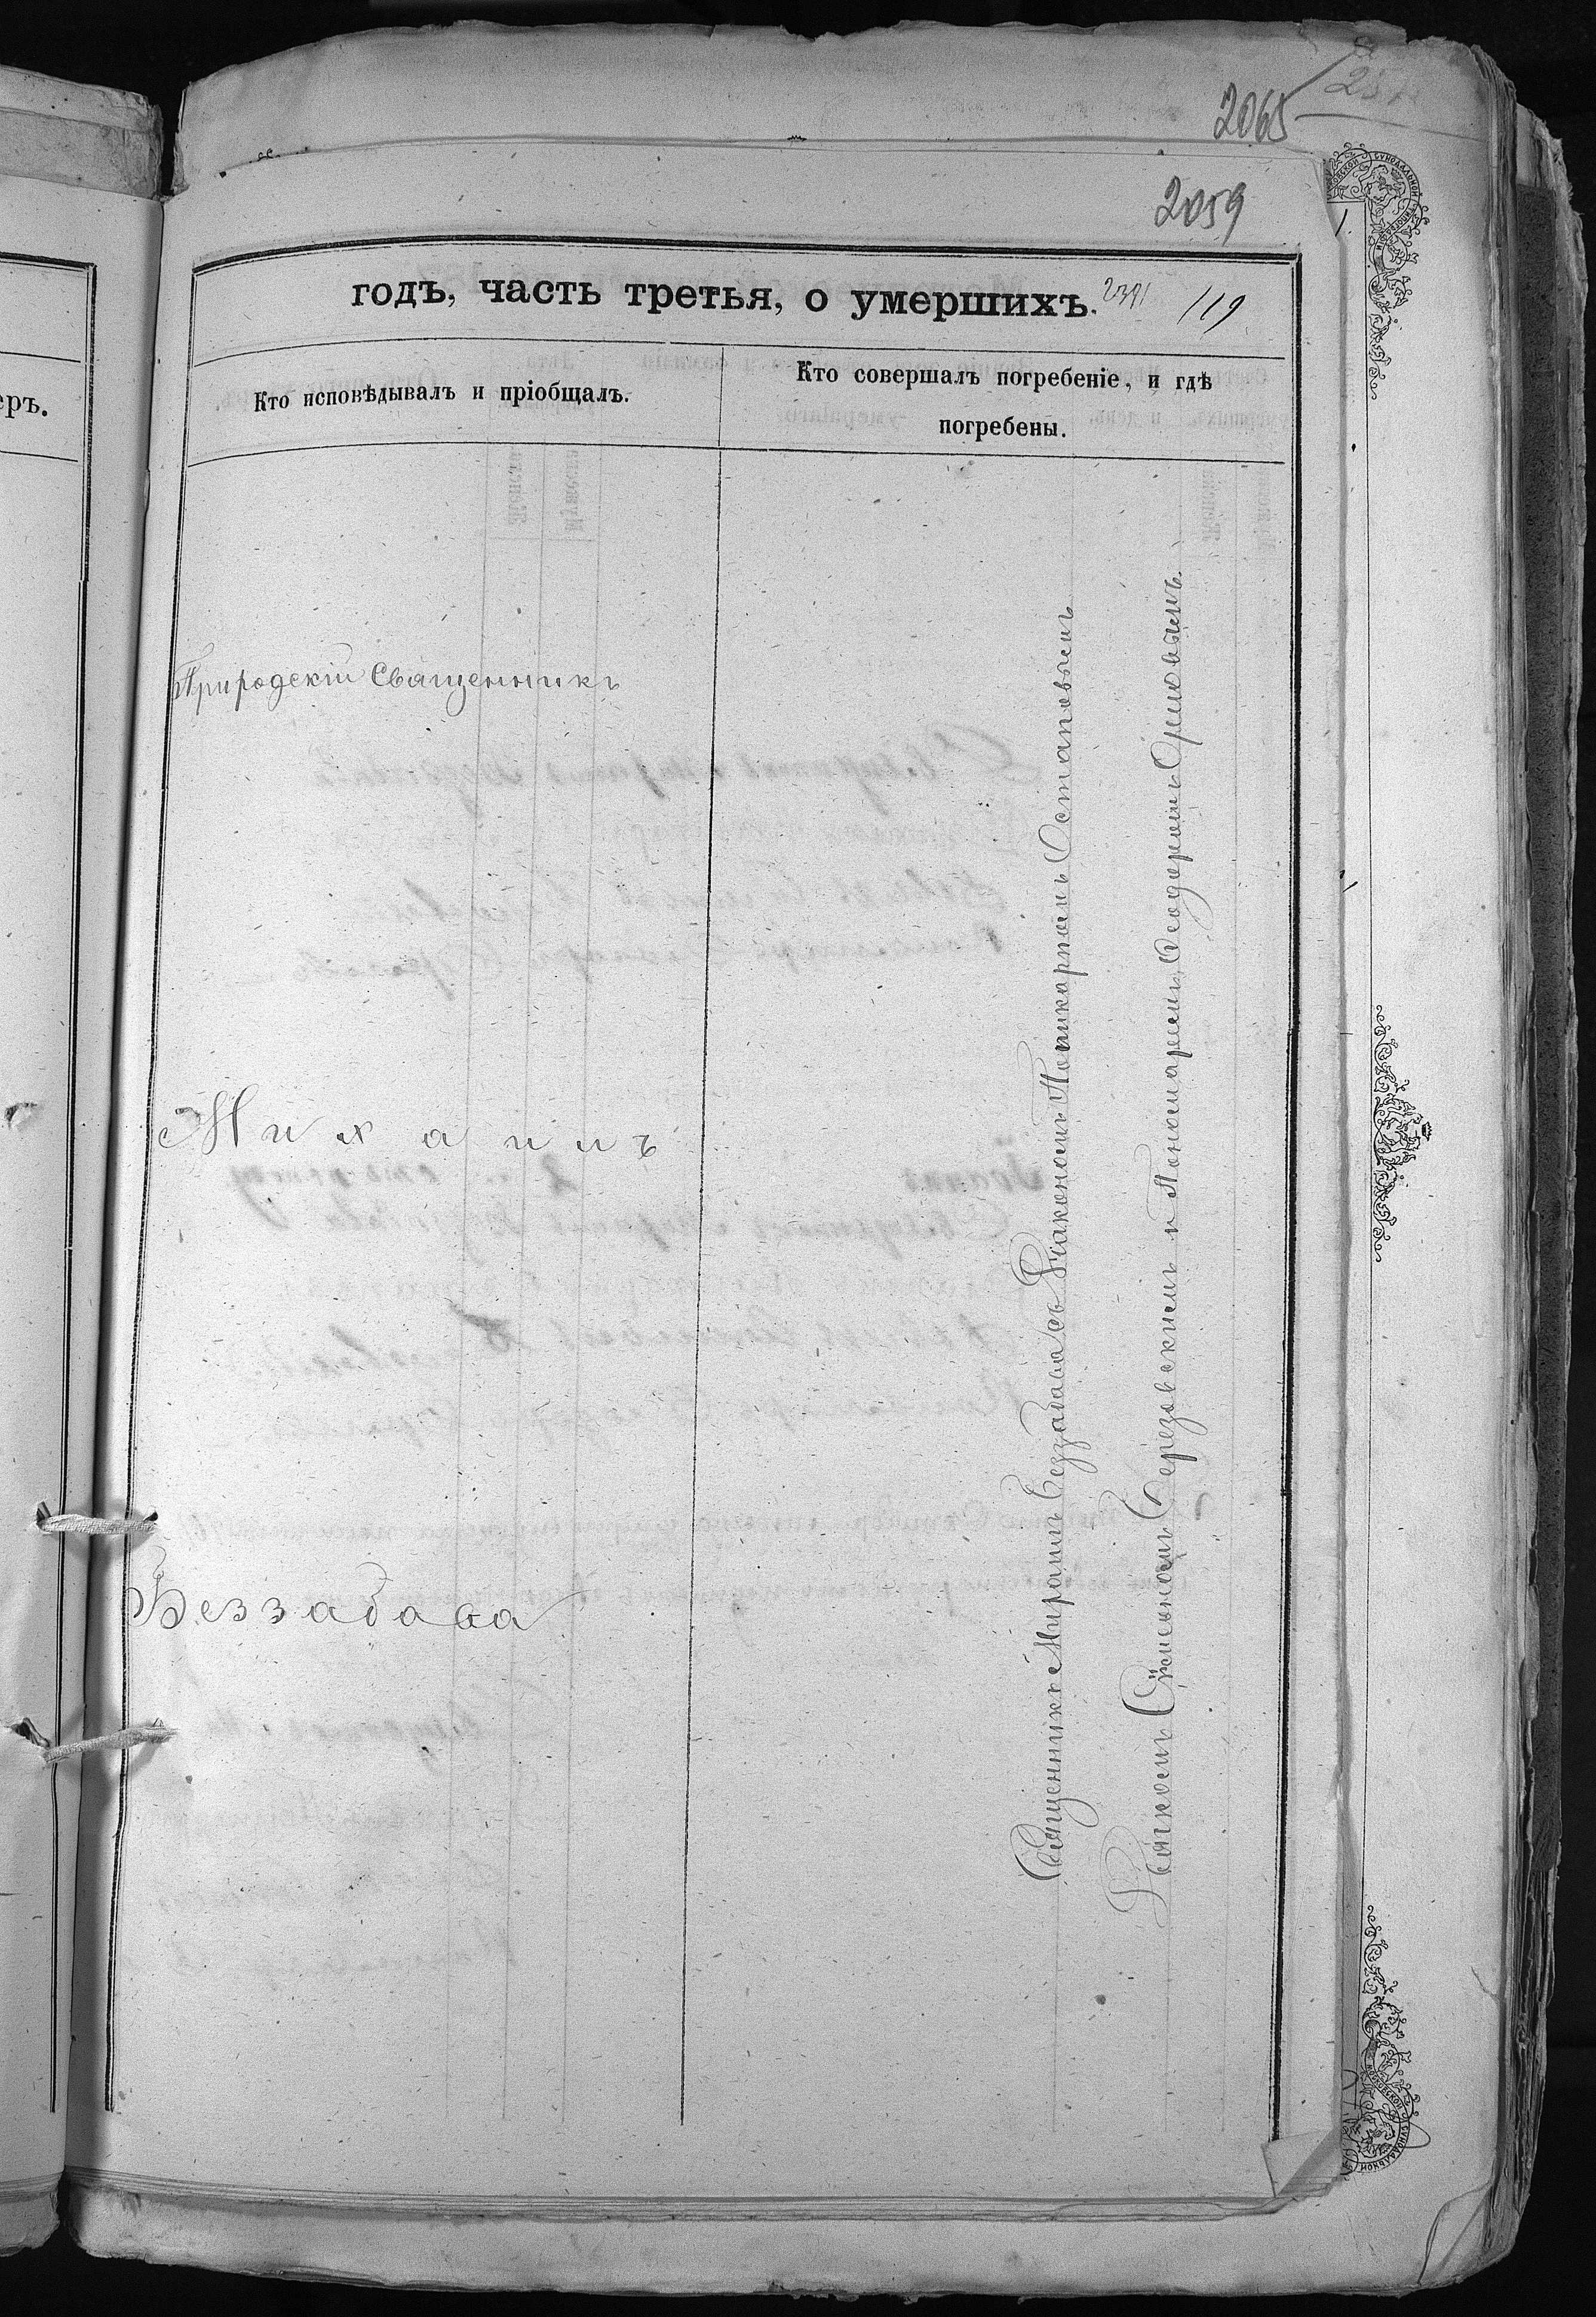 2065
2059
годъ, часть третья, о умершихъ.
119
Кто исповѣдывалъ и пріобщалъ.
Кто совершалъ погребеніе, и гдѣ
погребены.
еръ.
Священникъ
Михаилъ
Беззабава
Священникъ Михаилъ Беззабава съ Діакономъ Поликарпомъ Остаповымъ
Дьякомъ Березовскимъ и Пономаремъ Ѳеодоромъ